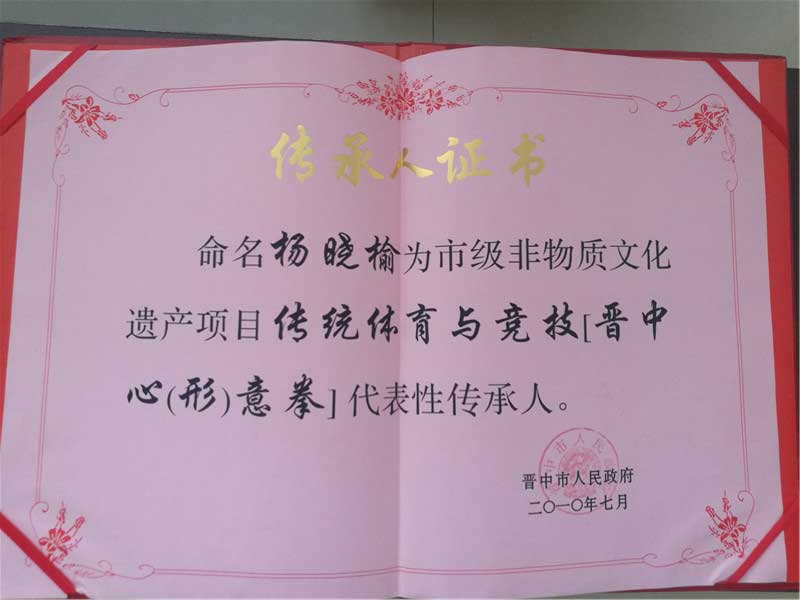 传承人证书
命名杨晓榆为市级非物质文化
遗产项目传统体育与竞技[晋中
心(形)意拳]代表性传承人。
晋中市人民政府
二〇一〇年七月